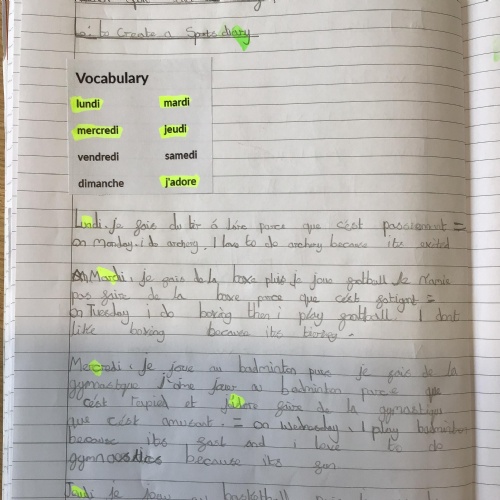 Lo: to Create a Sports diary
Vocabulary
lundi mardi
mercredi jeudi
vendredi samedi
dimanche j'adore
Lundi, Je fais du tir á parce que c'est passionant =
on Monday i do archery. I love to do archery because its
Mardi, je fais de la boxe puis je joue football Je
pas faire de la boxe parce que c'est fatigant =
on Tuesday i do boxing then i play football. I dont
like boxing because its
Mecredi, Je joue au badminton puis je fais de la
j'aime jouer au badminton parce que
c'est rapied et j'adore faire de la
que c'ést amusant. = on Wednesday, I play badminton
because its fast and i love to do
because its fun
Jeudi je joue au basketball